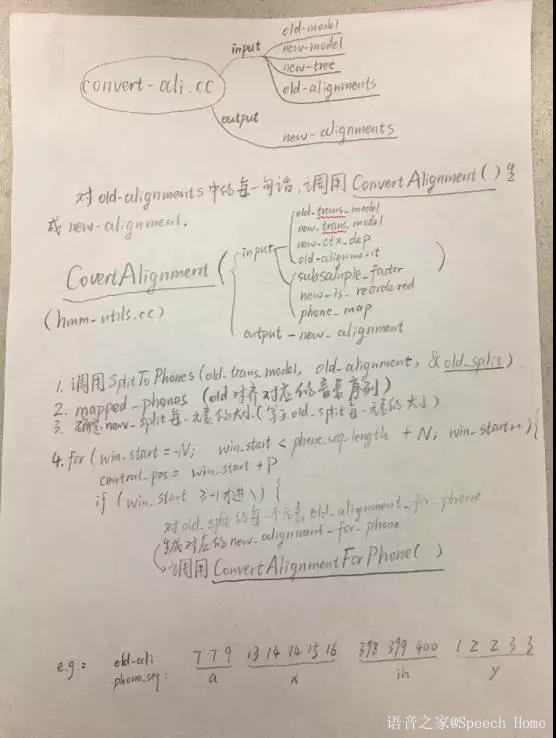 old-model
input new-model
new-tree
convert-ali.cc
old-alignments
output
new-alignments
对old-alignments中的每一句话,调用ConvertAlignment()生
成new-alignment.
old_trans_model
new_trans_model
input new_ctx_dep
old-alignment
CovertAlignment( subsample_factor )
new_is_reordered
(hmm-utils.cc) phone_map
output - new_alignment
1. 调用SplitToPhones(old_trans_model, old_alignment, &old_split)
2. mapped_phones (old对齐对应的音素序列)
3. 确定new_split每一元素的大小(等于old_split每一元素的大小)
4. for (win_start=-N; win_start < phone_seq_length + N; win_start++){
central_pos = win_start + P
if (win_start ≥-1才进入) {
对old_split的每一个元素old_alignment_for_phone
生成对应的new_alignment_for_phone
调用ConvertAlignmentForPhone()
e.g.: old-ali 7 7 9 13 14 14 15 16 398 399 400 1 2 2 3 3
phone_seq: a x ih y
语音之家@Speech Home